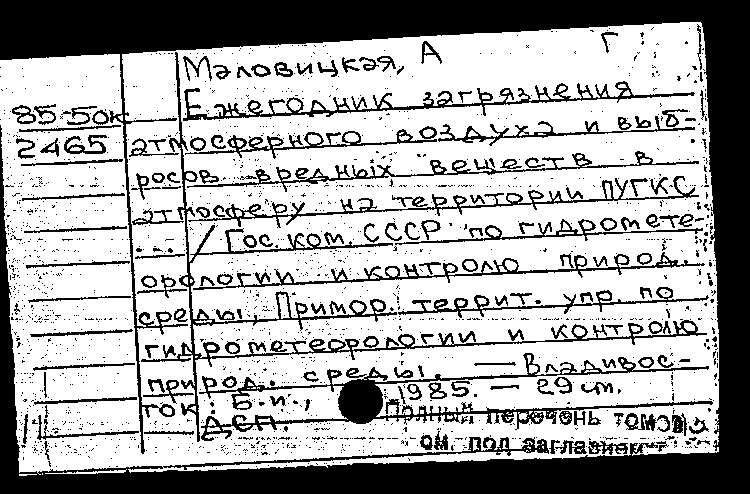 Маловицкая, А Г
85-5ок
2465
Ежегодник загрязнения
атмосферного воздуха и выб-
росов вредных веществ в
атмосферу на территории ПУГКС
... / Гос. ком. СССР по гидромете-
орологии и контролю природ.
среды, Примор. террит. упр. по
гидрометеорологии и контролю
природ. среды. — Владивос-
ток: Б.и., 1985. — 29 см.
ДСП.
Полный перечень томов
см. под заглавием